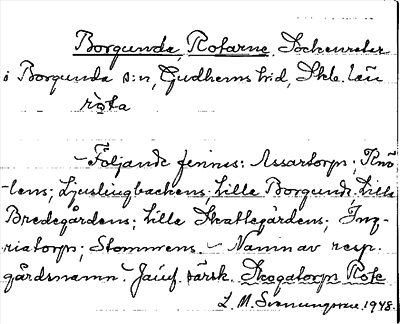 Borgunda Rotarne, Sockenroter
i Borgunda s:n, Gudhems hd, Skb. län
röta
– Följande finnes: Assartorps; Knö-
lens; Ljuslingbackens; Lille Borgunds; Lilla
Bredegårdens; Lille Skattegårdens; Ing-
riatorps; Stommens. – Namn av resp.
gårdsnamn. Jämf. särsk. Skogatorps Rote
L. M. Svenungsson. 1948.